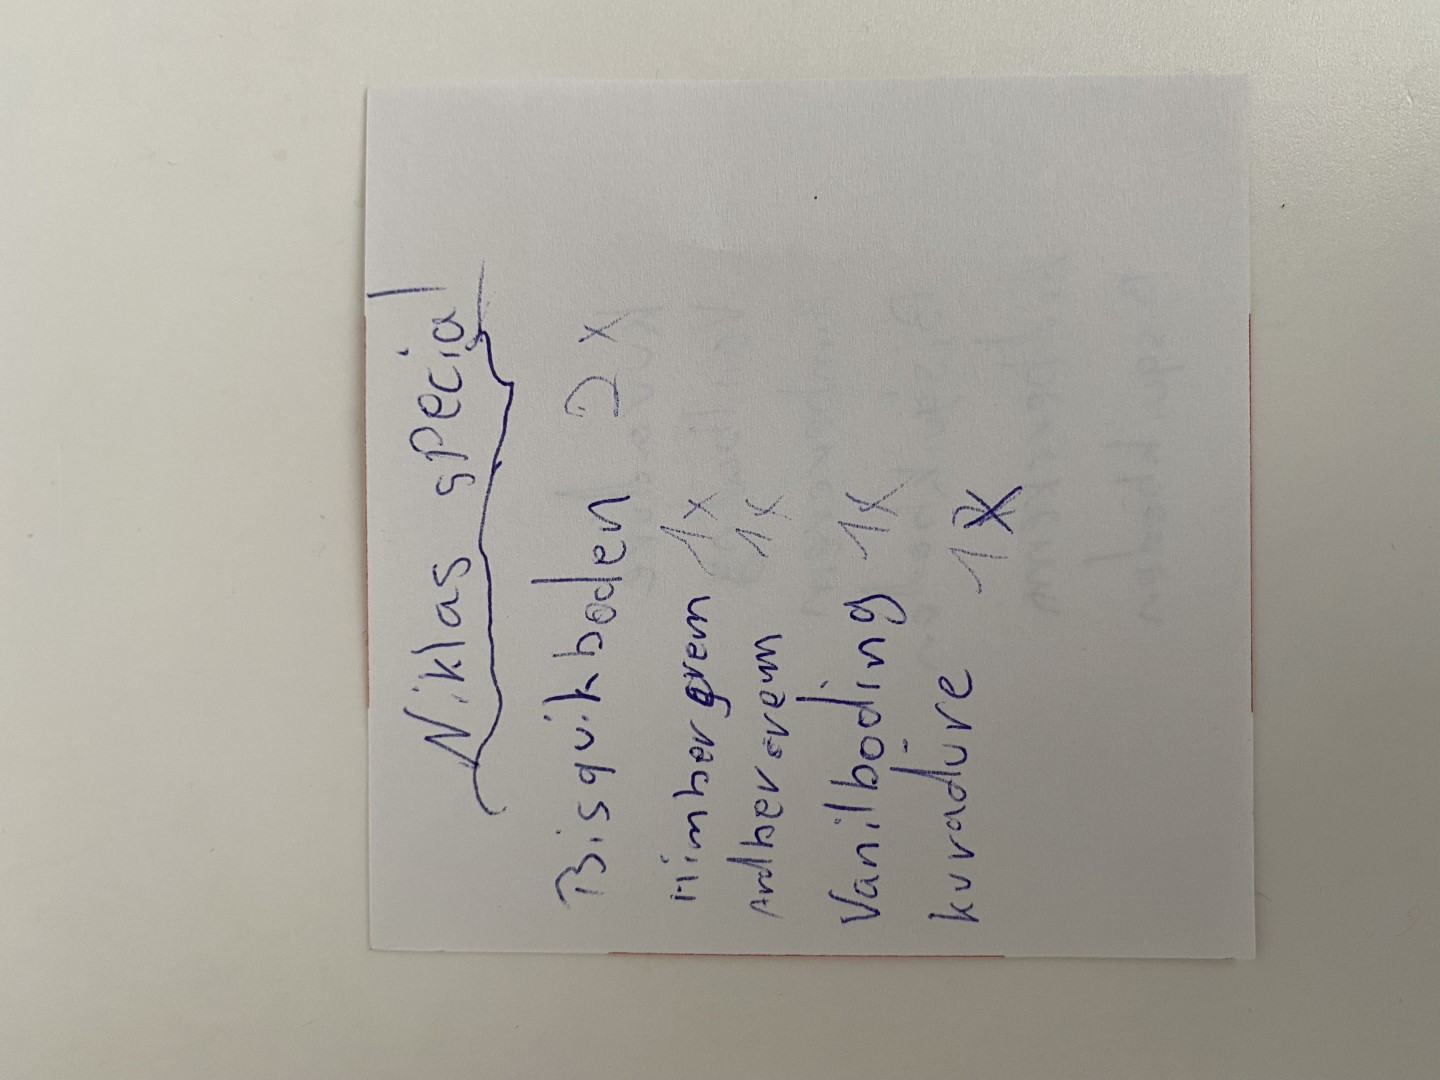 Niklas special
Bisquikboden 2x
Himbergrem 1x
Ardbererem 1x
Vanilboding 1x
kuvadüre 1x